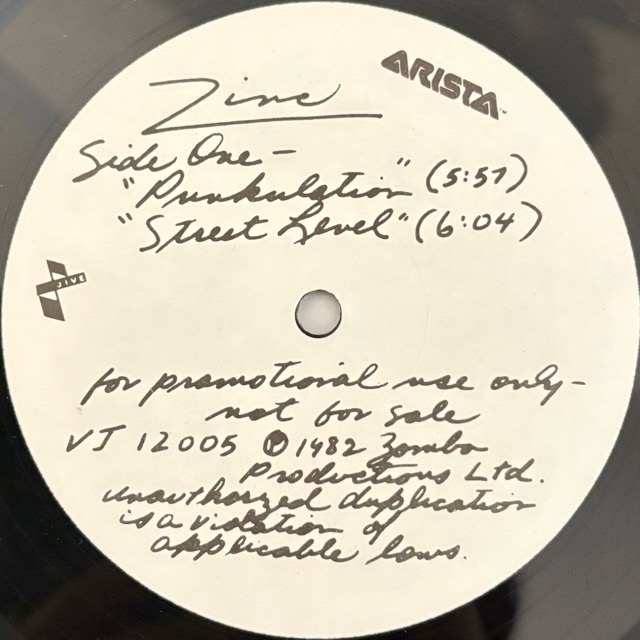 Zinc
ARISTA™
Side One -
"Punkulation" (5:57)
"Street Level" (6:04)
JIVE
for promotional use only -
not for sale
VJ 12005 ℗ 1982 Zomba
Productions Ltd.
unauthorized duplication
is a violation of
applicable laws.